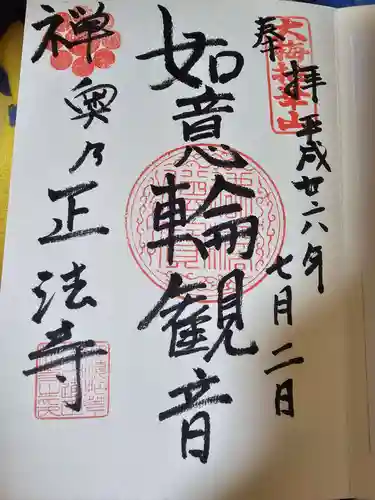 奉拝
平成廿六年
七月二日
如意輪観音
禅
奥乃
正法寺